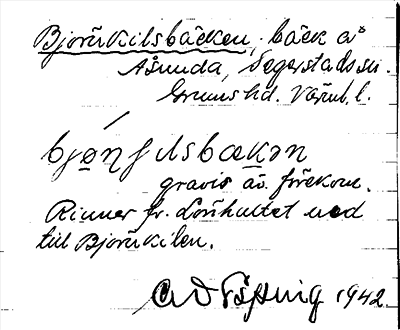 Björnkilsbäcken, bäck å
Åsunda, Segerstads sn.
Grums hd. Värml. l.
bjø̠ŋ ʃilsbækən
gravis äv. förekom.
Rinner fr. Lönhultet ned
till Björnkilen.
1942.